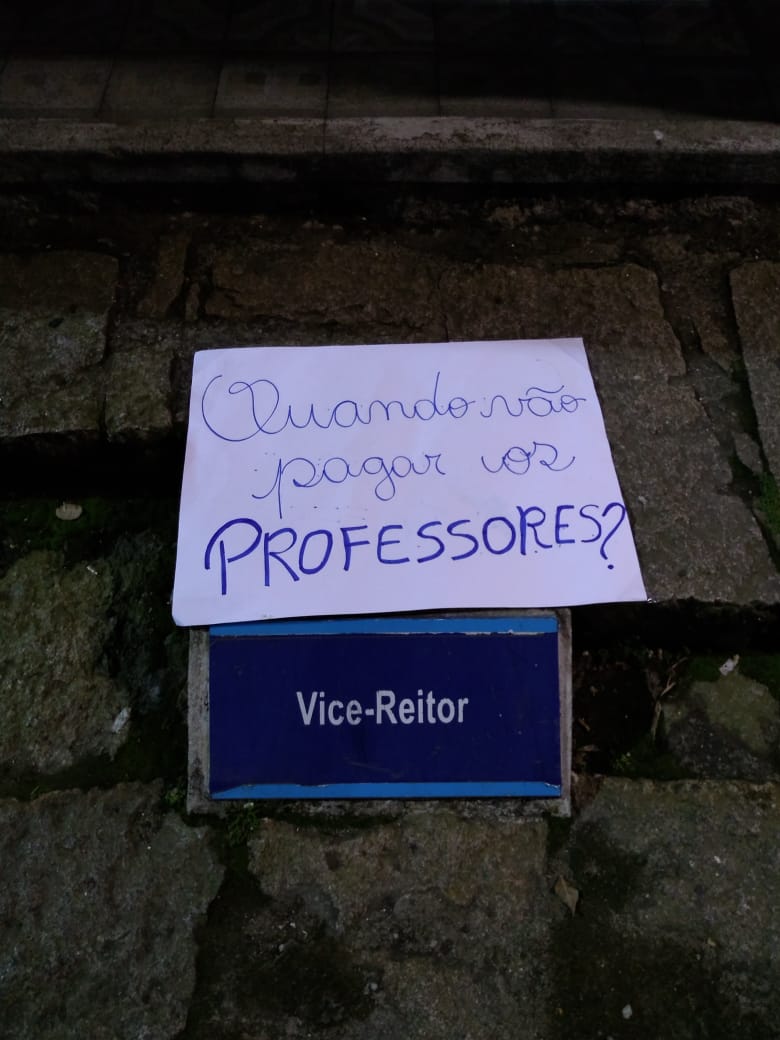 Quando vão
pagar os
PROFESSORES?
Vice-Reitor